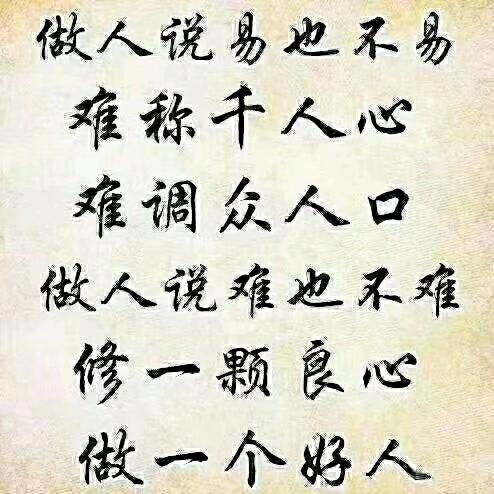 做人说易也不易
难称千人心
难调众人口
做人说难也不难
修一颗良心
做一个好人